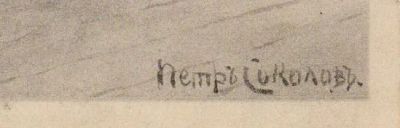 Петръ Соколовъ.